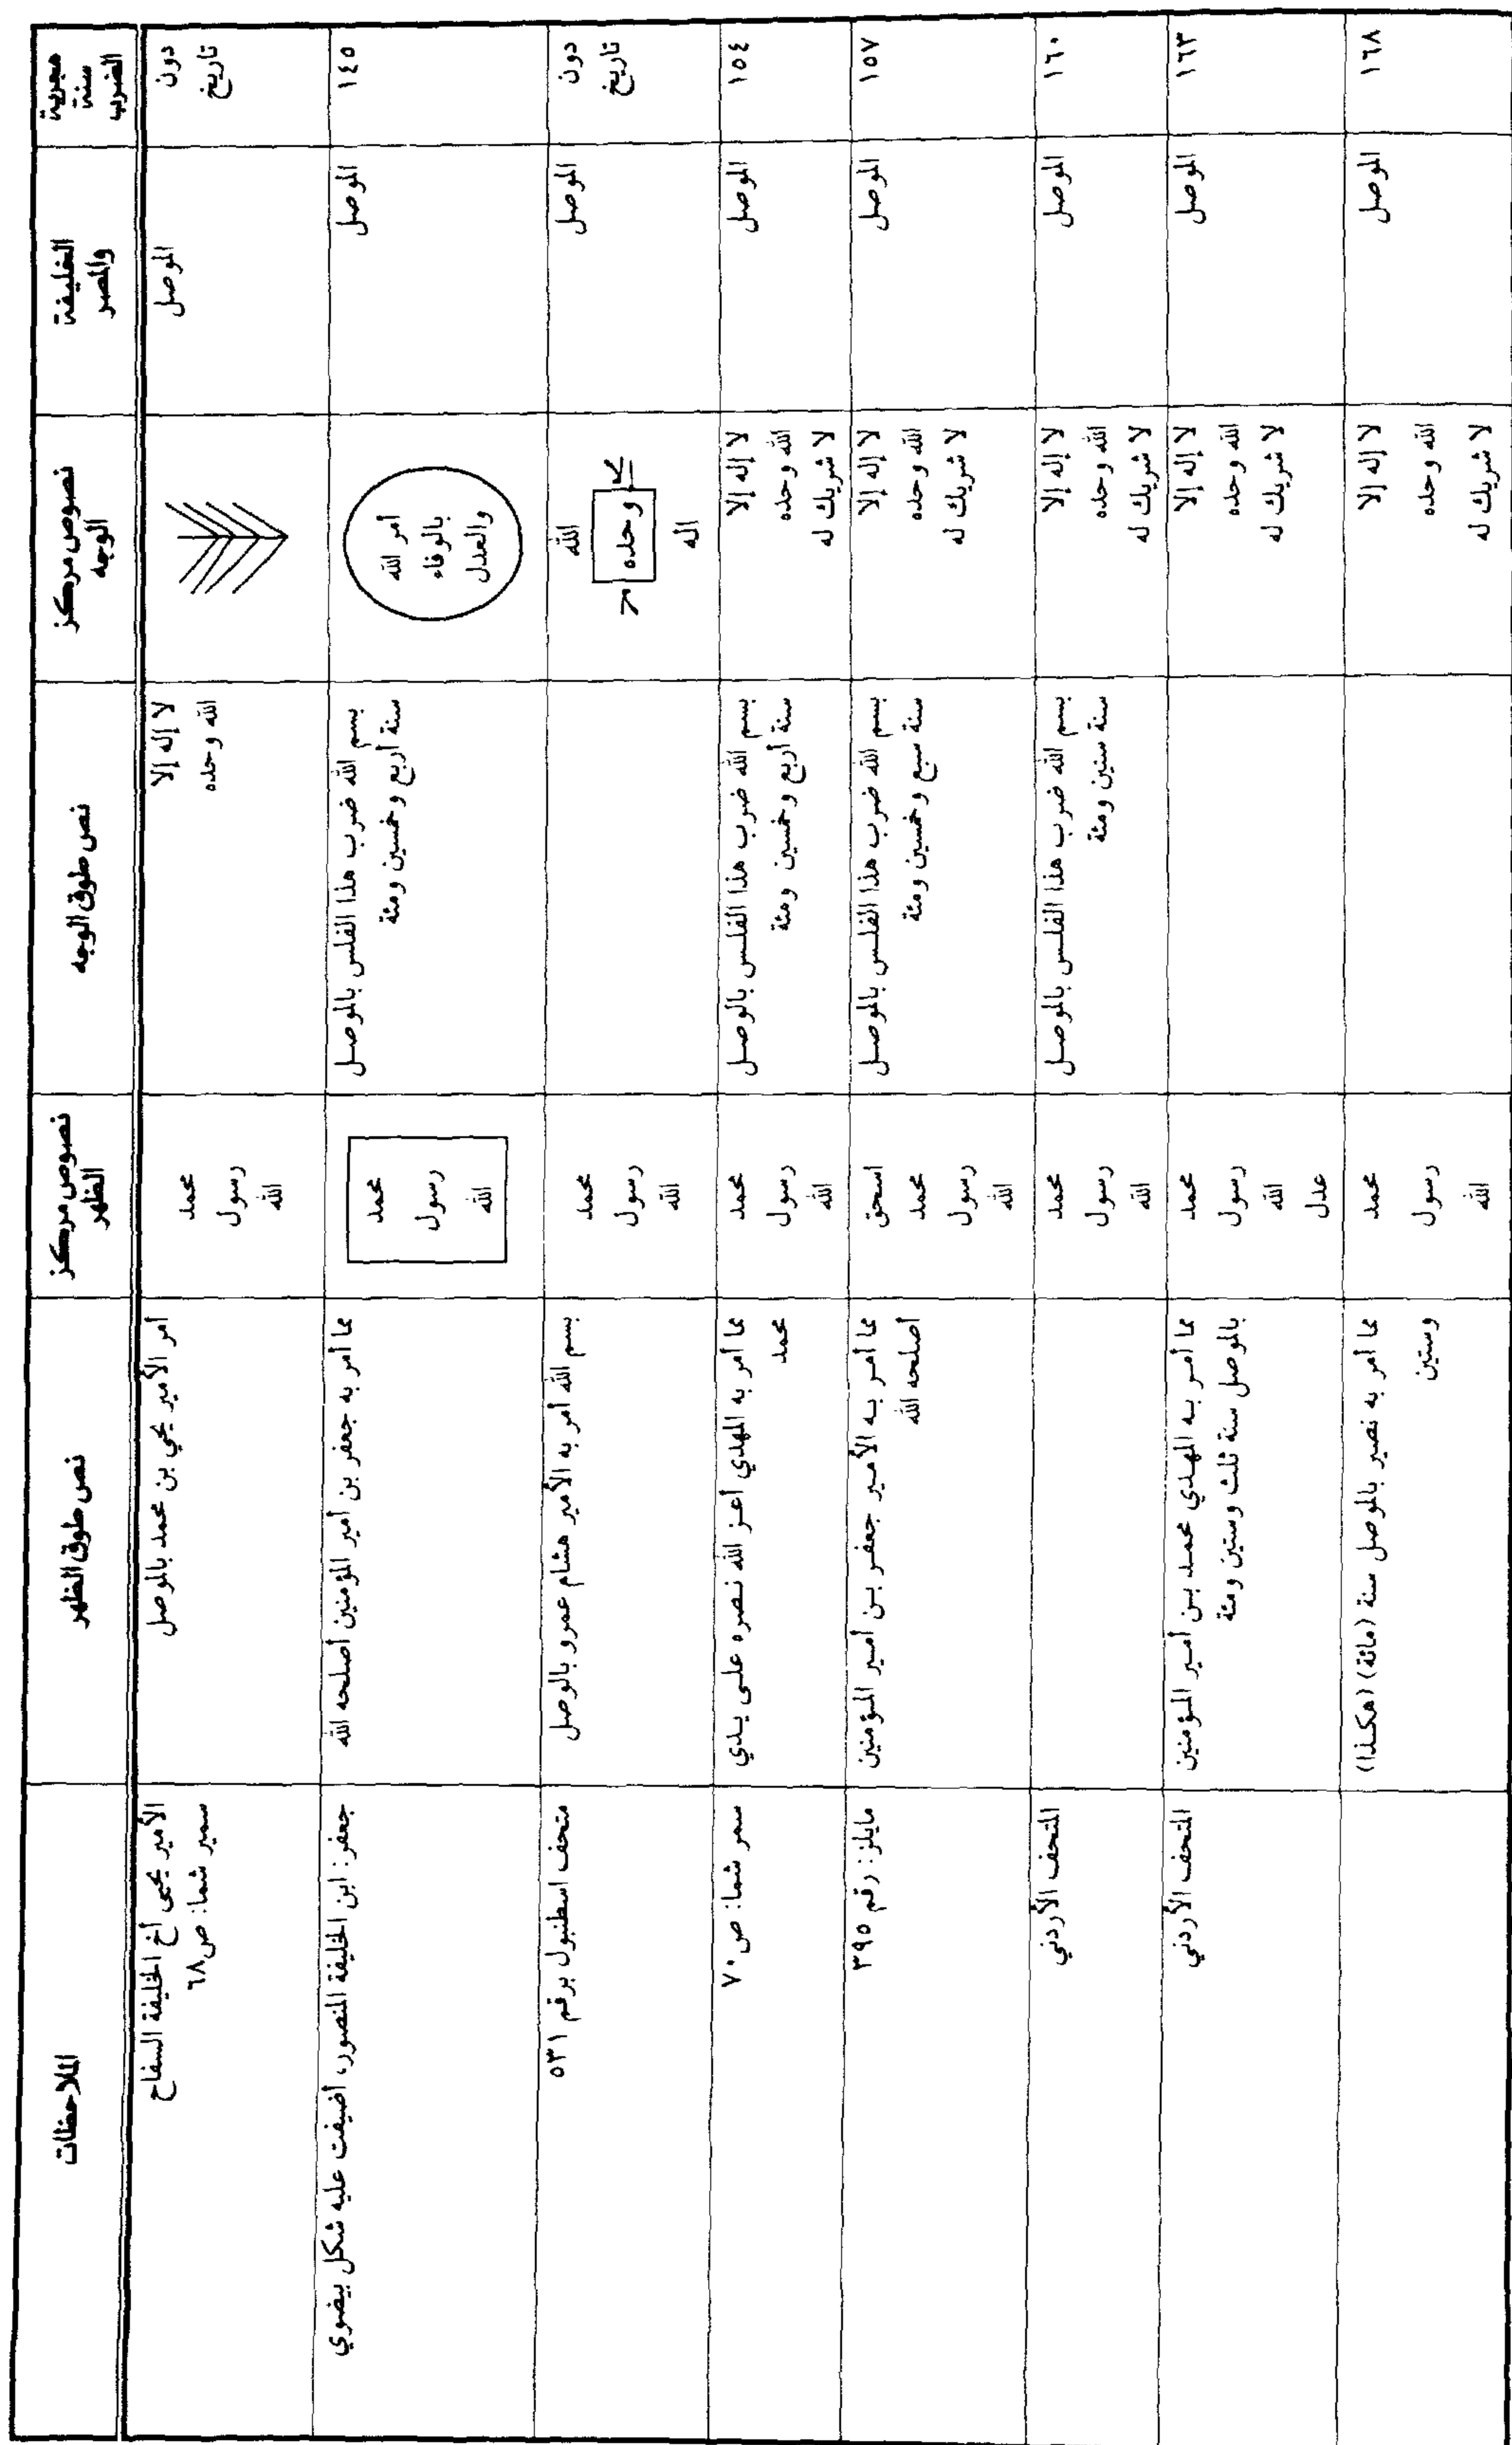 سنة الضرب هجرية
الخليفة والمصر
نصوص مركز الوجه
نص طوق الوجه
نصوص مركز الظهر
نص طوق الظهر
الملاحظات
دون
تاريخ
الموصل
لا إله إلا
الله وحده
محمد
رسول
الله
أمر الأمير يحي بن محمد بالموصل
الأمير يحيى أخ الخليفة السفاح
سمير شما: ص٦٨
١٤٥
الموصل
أمر الله
بالوفاء
والعدل
بسم الله ضرب هذا الفلس بالموصل
سنة أربع وخمسين ومئة
محمد
رسول
الله
مما أمر به جعفر بن أمير المؤمنين أصلحه الله
جعفر: ابن الخليفة المنصور، أضيفت عليه شكل بيضوي
دون
تاريخ
الموصل
الله
وحده
اله
محمد
رسول
الله
بسم الله أمر به الأمير هشام عمرو بالوصل
متحف اسطنبول برقم ٥٣١
١٥٤
الموصل
لا إله إلا
الله وحده
لا شريك له
بسم الله ضرب هذا الفلس بالوصل
سنة أربع وخمسين ومئة
محمد
رسول
الله
مما أمر به المهدي أعز الله نصره على يدي
محمد
سمر شما: ص٧٠
١٥٧
الموصل
لا إله إلا
الله وحده
لا شريك له
بسم الله ضرب هذا الفلس بالموصل
سنة سبع وخمسين ومئة
اسحق
محمد
رسول
الله
مما أمر به الأمير جعفر بن أمير المؤمنين
أصلحه الله
مايلز: رقم ٣٩٥
١٦٠
الموصل
لا إله إلا
الله وحده
لا شريك له
بسم الله ضرب هذا الفلس بالموصل
سنة ستين ومئة
محمد
رسول
الله
المتحف الأردني
١٦٣
الموصل
لا إله إلا
الله وحده
لا شريك له
محمد
رسول
الله
عدل
مما أمر به المهدي محمد بن أمير المؤمنين
بالموصل سنة ثلث وستين ومئة
المتحف الأردني
١٦٨
الموصل
لا إله إلا
الله وحده
لا شريك له
محمد
رسول
الله
مما أمر به نصير بالموصل سنة (مائة) (هكذا)
وستين